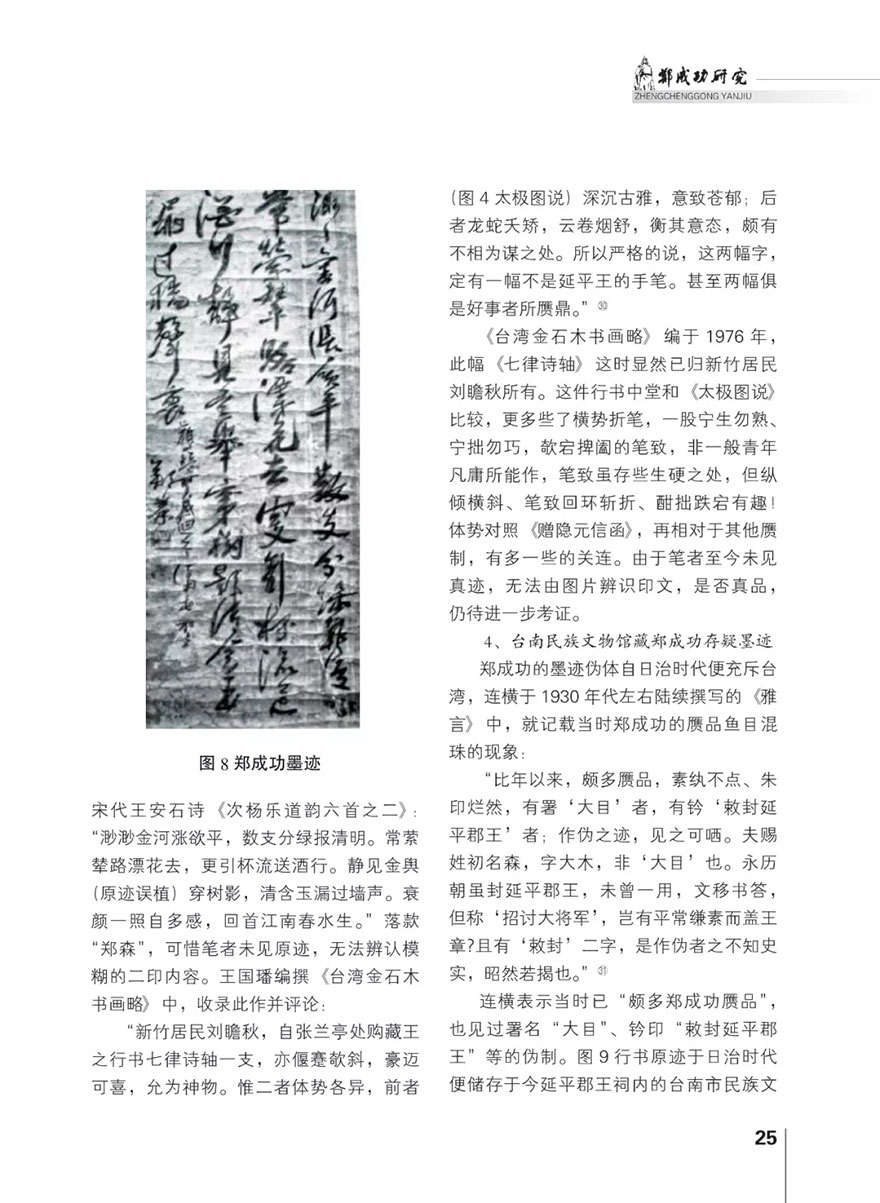 郑成功研究
ZHENGCHENGGONG YANJIU
图 8 郑成功墨迹
宋代王安石诗《次杨乐道韵六首之二》：
“渺渺金河涨欲平，数支分绿报清明。常萦
辇路漂花去，更引杯流送酒行。静见金舆
（原迹误植）穿树影，清含玉漏过墙声。衰
颜一照自多感，回首江南春水生。”落款
“郑森”，可惜笔者未见原迹，无法辨认模
糊的二印内容。王国璠编撰《台湾金石木
书画略》中，收录此作并评论：
“新竹居民刘瞻秋，自张兰亭处购藏王
之行书七律诗轴一支，亦偃蹇欹斜，豪迈
可喜，允为神物。惟二者体势各异，前者
（图 4 太极图说）深沉古雅，意致苍郁；后
者龙蛇夭矫，云卷烟舒，衡其意态，颇有
不相为谋之处。所以严格的说，这两幅字，
定有一幅不是延平王的手笔。甚至两幅俱
是好事者所赝鼎。”㉚
《台湾金石木书画略》编于 1976 年，
此幅《七律诗轴》这时显然已归新竹居民
刘瞻秋所有。这件行书中堂和《太极图说》
比较，更多些了横势折笔，一股宁生勿熟、
宁拙勿巧，欹宕捭阖的笔致，非一般青年
凡庸所能作，笔致虽存些生硬之处，但纵
倾横斜、笔致回环斩折、酣拙跌宕有趣！
体势对照《赠隐元信函》，再相对于其他赝
制，有多一些的关连。由于笔者至今未见
真迹，无法由图片辨识印文，是否真品，
仍待进一步考证。
4、台南民族文物馆藏郑成功存疑墨迹
郑成功的墨迹伪体自日治时代便充斥台
湾，连横于 1930 年代左右陆续撰写的《雅
言》中，就记载当时郑成功的赝品鱼目混
珠的现象：
“比年以来，颇多赝品，素纨不点、朱
印烂然，有署‘大目’者，有钤‘敕封延
平郡王’者；作伪之迹，见之可哂。夫赐
姓初名森，字大木，非‘大目’也。永历
朝虽封延平郡王，未曾一用，文移书答，
但称‘招讨大将军’，岂有平常缣素而盖王
章?且有‘敕封’二字，是作伪者之不知史
实，昭然若揭也。”㉛
连横表示当时已“颇多郑成功赝品”，
也见过署名“大目”、钤印“敕封延平郡
王”等的伪制。图 9 行书原迹于日治时代
便储存于今延平郡王祠内的台南市民族文
25